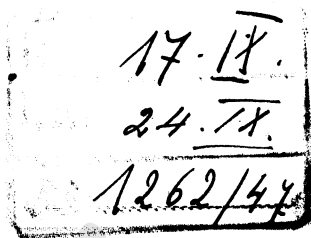 17. IX.
24. IX.
1262/47